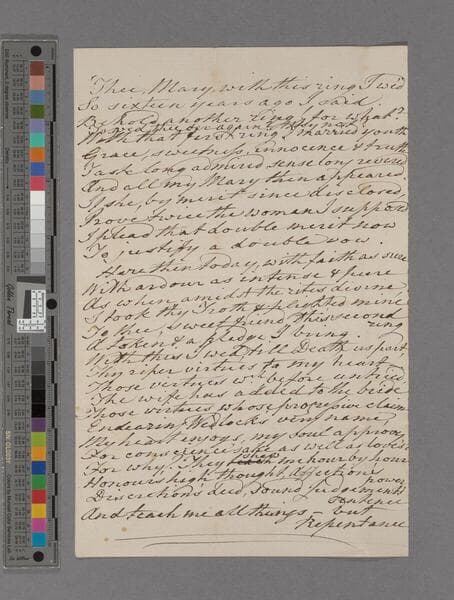 Thee, Mary, with this ring I wed
So sixteen years ago I said.
Behold another ring, for what?
To wed thee o'er again? Why not
With that first ring I married youth
Grace, sweetness, innocence & truth
Taste long admired sense long revered
And all my Mary then appeared.
If she, by merit since disclosed,
Prove twice the woman I supposed
I plead that double merit now
To justify a double vow.
Here then today, with faith as sure
With ardour as intense & pure
As when amid the rites divine
I took thy troth & plighted mine
To thee, sweet friend this second ring
A token & a pledge I bring
With this I wed till Death us part
Thy riper virtues to my heart
Those virtues wh: before untried
The wife has added to the bride
Those virtues whose progressive claim
Endearing Wedlocks very name
My heart enjoys, my soul approves
For conscience sake as well as love's
For why? They shew me hour by hour
Honours high thought, Affections power
Discretions deed, Sound Judgments Sentence
And teach me all things – but Repentance
Golden Thread